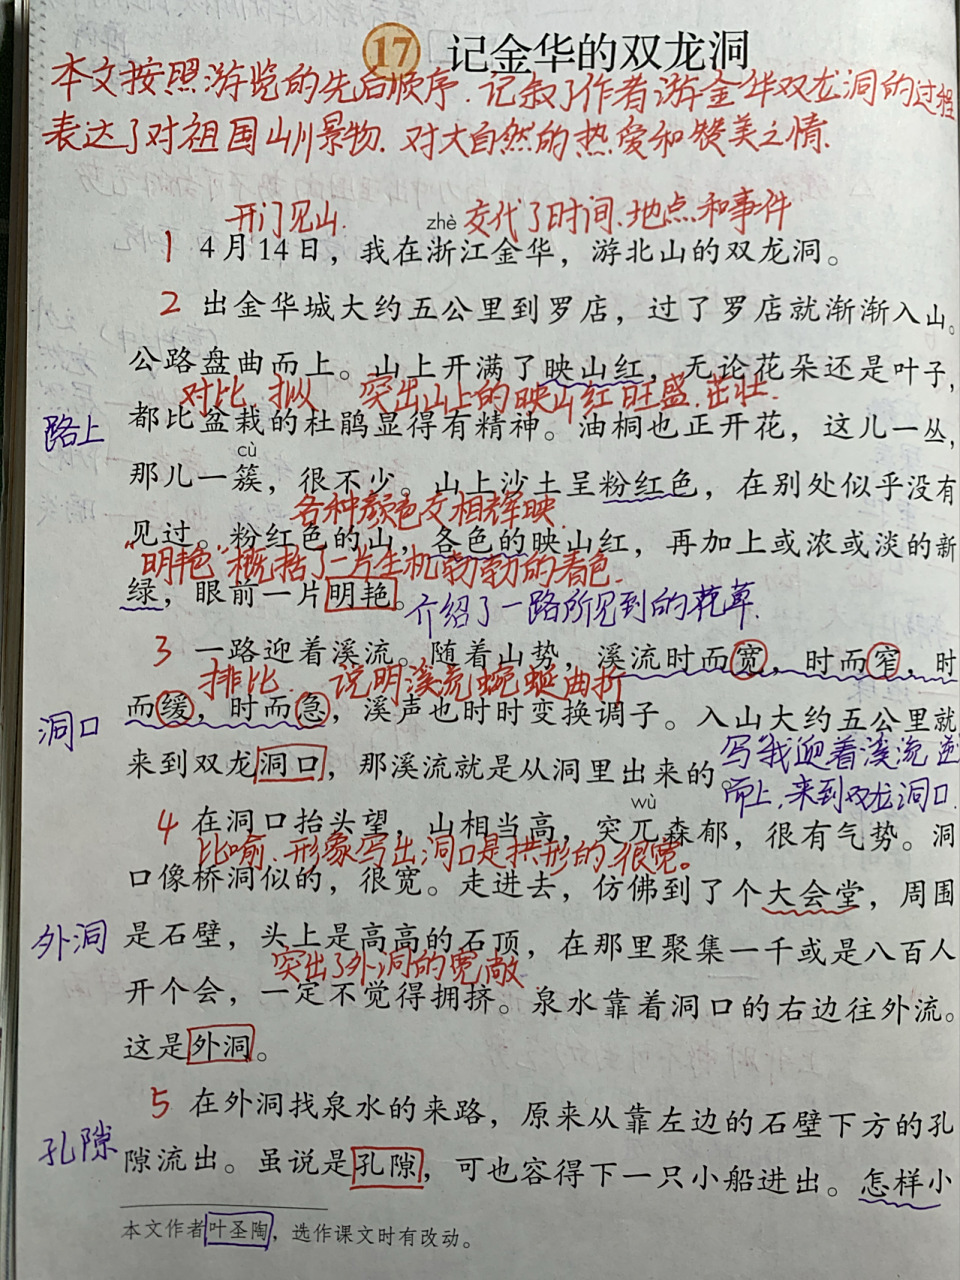 17 记金华的双龙洞
本文按照游览的先后顺序.记叙了作者游金华双龙洞的过程
表达了对祖国山川景物.对大自然的热爱和赞美之情.
开门见山. zhè 交代了时间.地点和事件
1 4月14日，我在浙江金华，游北山的双龙洞。
2 出金华城大约五公里到罗店，过了罗店就渐渐入山。
公路盘曲而上。山上开满了映山红，无论花朵还是叶子，
对比.拟 突出山上的映山红旺盛.茁壮.
路上 都比盆栽的杜鹃显得有精神。油桐也正开花，这儿一丛，
cù
那儿一簇，很不少。山上沙土呈粉红色，在别处似乎没有
各种颜色交相辉映.
见过。粉红色的山，各色的映山红，再加上或浓或淡的新
"明艳"概括了一片生机勃勃的春色.
绿，眼前一片明艳。介绍了一路所见到的花草.
3 一路迎着溪流。随着山势，溪流时而宽，时而窄，时
排比. 说明溪流蜿蜒曲折
洞口 而缓，时而急，溪声也时时变换调子。入山大约五公里就
写我迎着溪流逆
来到双龙洞口，那溪流就是从洞里出来的。
而上.来到双龙洞口.
wù
4 在洞口抬头望，山相当高，突兀森郁，很有气势。洞
比喻.形象写出洞口是拱形的.很宽。
口像桥洞似的，很宽。走进去，仿佛到了个大会堂，周围
外洞 是石壁，头上是高高的石顶，在那里聚集一千或是八百人
突出了外洞的宽敞
开个会，一定不觉得拥挤。泉水靠着洞口的右边往外流。
这是外洞。
5 在外洞找泉水的来路，原来从靠左边的石壁下方的孔
孔隙 隙流出。虽说是孔隙，可也容得下一只小船进出。怎样小
本文作者叶圣陶，选作课文时有改动。